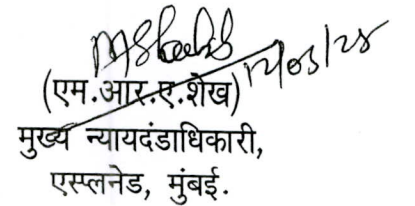 12/03/24
(एम.आर.ए.शेख)
मुख्य न्यायदंडाधिकारी,
एस्प्लनेड, मुंबई.